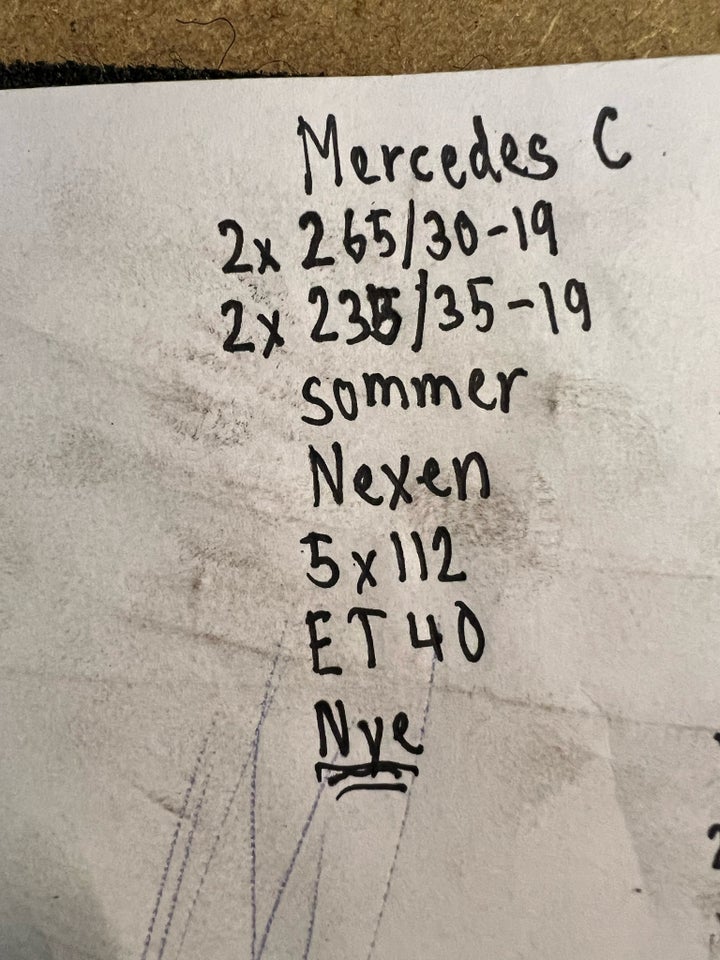 Mercedes C
2x 265/30-19
2x 235/35-19
sommer
Nexen
5x112
ET 40
Nye